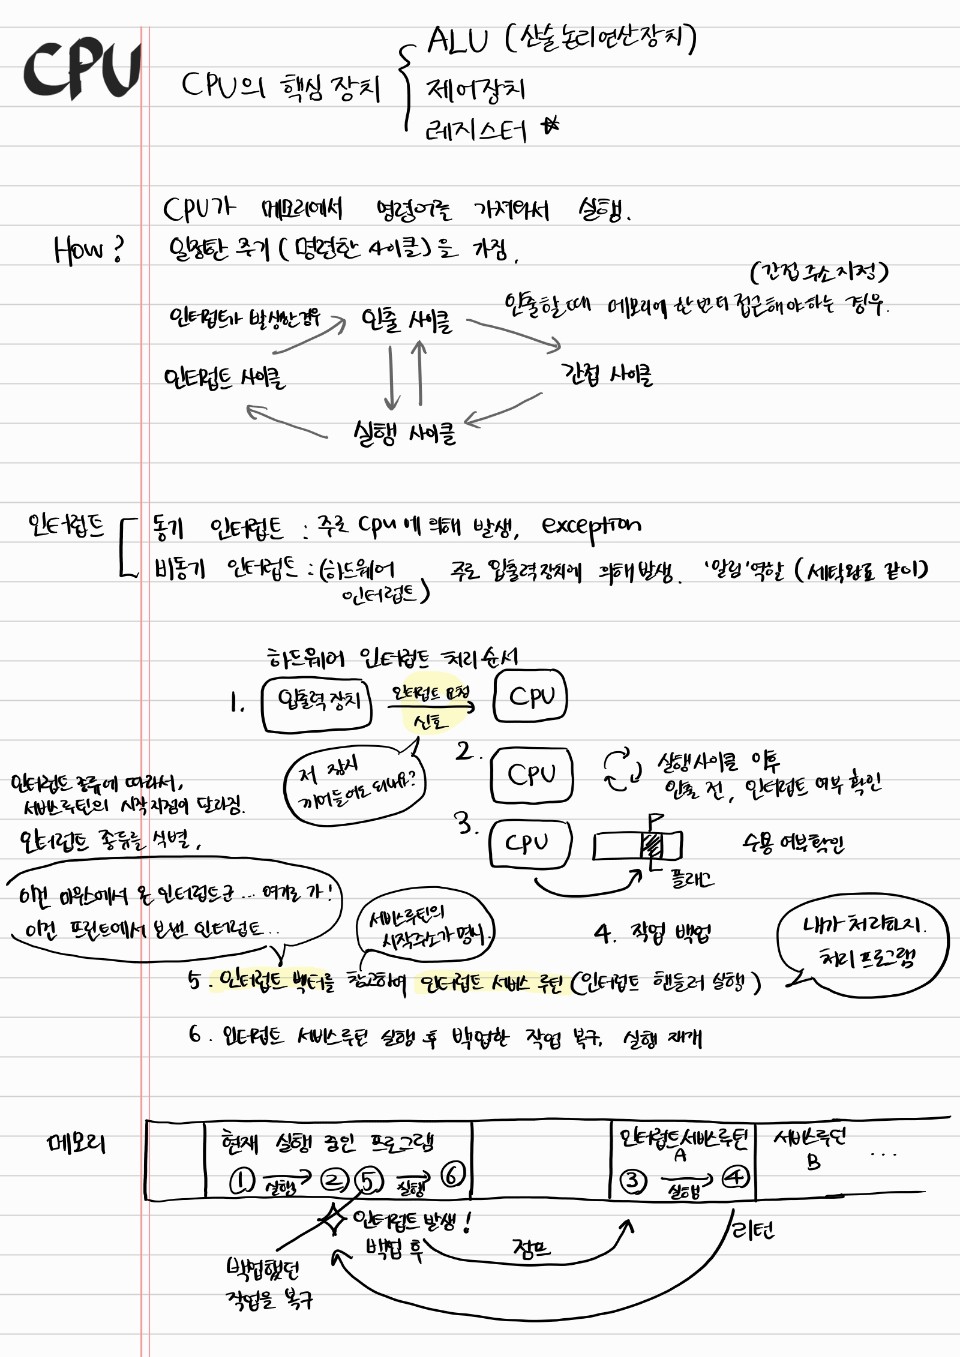 CPU
CPU의 핵심 장치
ALU (산술논리연산장치)
제어장치
레지스터 ☆
CPU가 메모리에서 명령어를 가져와서 실행.
How? 일정한 주기 (명령한 사이클)을 가짐.
(간접 주소 지정)
인출할 때 메모리에 한 번 더 접근해야 하는 경우.
인터럽트가 발생한 경우
인출 사이클
인터럽트 사이클
간접 사이클
실행 사이클
인터럽트
동기 인터럽트 : 주로 cpu에 의해 발생, exception
비동기 인터럽트 : (하드웨어 인터럽트) 주로 입출력장치에 의해 발생. '알림' 역할 (세탁완료 같이)
하드웨어 인터럽트 처리 순서
1. 입출력 장치
인터럽트 요청
신호
CPU
저 잠시
끼어들어도 되나요?
2. CPU
실행사이클 이후
인출 전, 인터럽트 여부 확인
3. CPU
플래그
수용 여부 확인
인터럽트 종류에 따라서,
서비스루틴의 시작지점이 달라짐.
인터럽트 종류를 식별,
이건 마우스에서 온 인터럽트군... 여기로 가!
이건 프린트에서 보낸 인터럽트...
서비스루틴의
시작주소가 명시
4. 작업 백업
내가 처리하지.
처리 프로그램
5. 인터럽트 벡터를 참고하여 인터럽트 서비스 루틴 (인터럽트 핸들러 실행)
6. 인터럽트 서비스루틴 실행 후 백업한 작업 복구, 실행 재개
메모리
현재 실행 중인 프로그램
① 실행 ② ⑤ 실행 ⑥
인터럽트서비스루틴
A
③ 실행 ④
서비스루틴
B
...
인터럽트 발생!
백업 후
점프
리턴
백업했던
작업을 복구